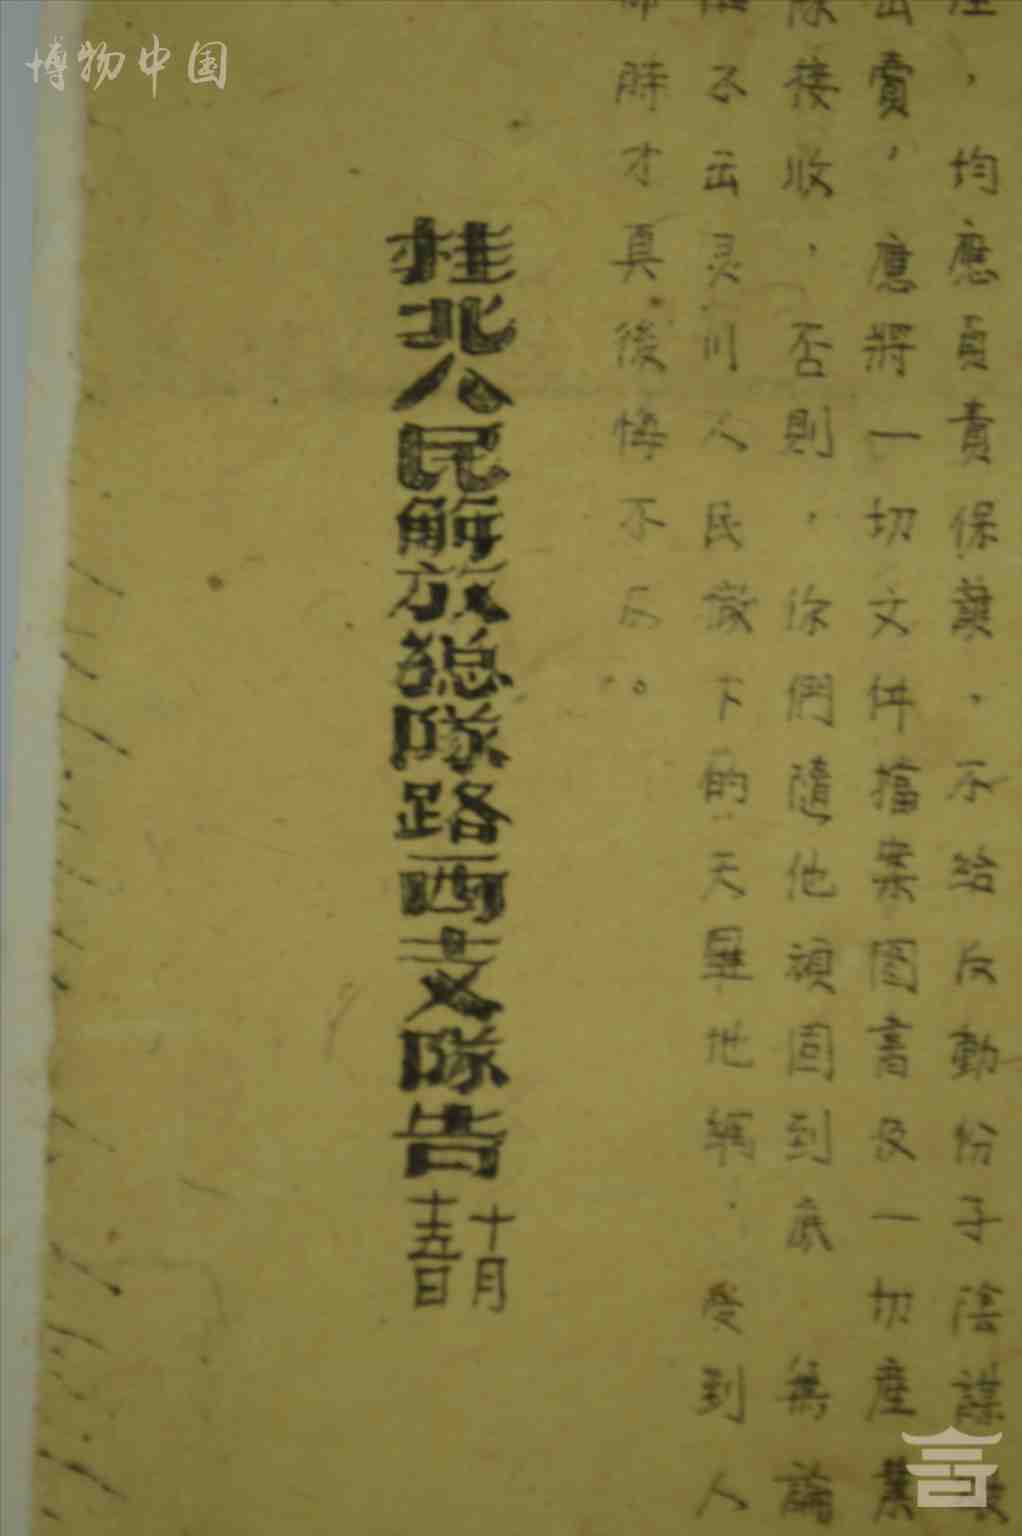 ，均應負責保護，不給反動份子陰謀
出賣，應將一切文件擋案圖書及一切產業
隊接收，否則，你們隨他頑固到底 無論
不出灵川人民儌下的天羅地網，受到人
時才真後悔不及。
桂北人民解放總隊路西支隊告
十月
十五日
博物中国